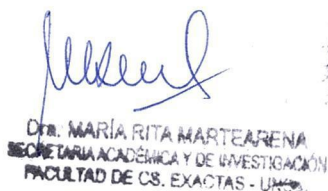 Dra. MARÍA RITA MARTEARENA
SECRETARIA ACADÉMICA Y DE INVESTIGACIÓN
FACULTAD DE CS. EXACTAS - UNSa.